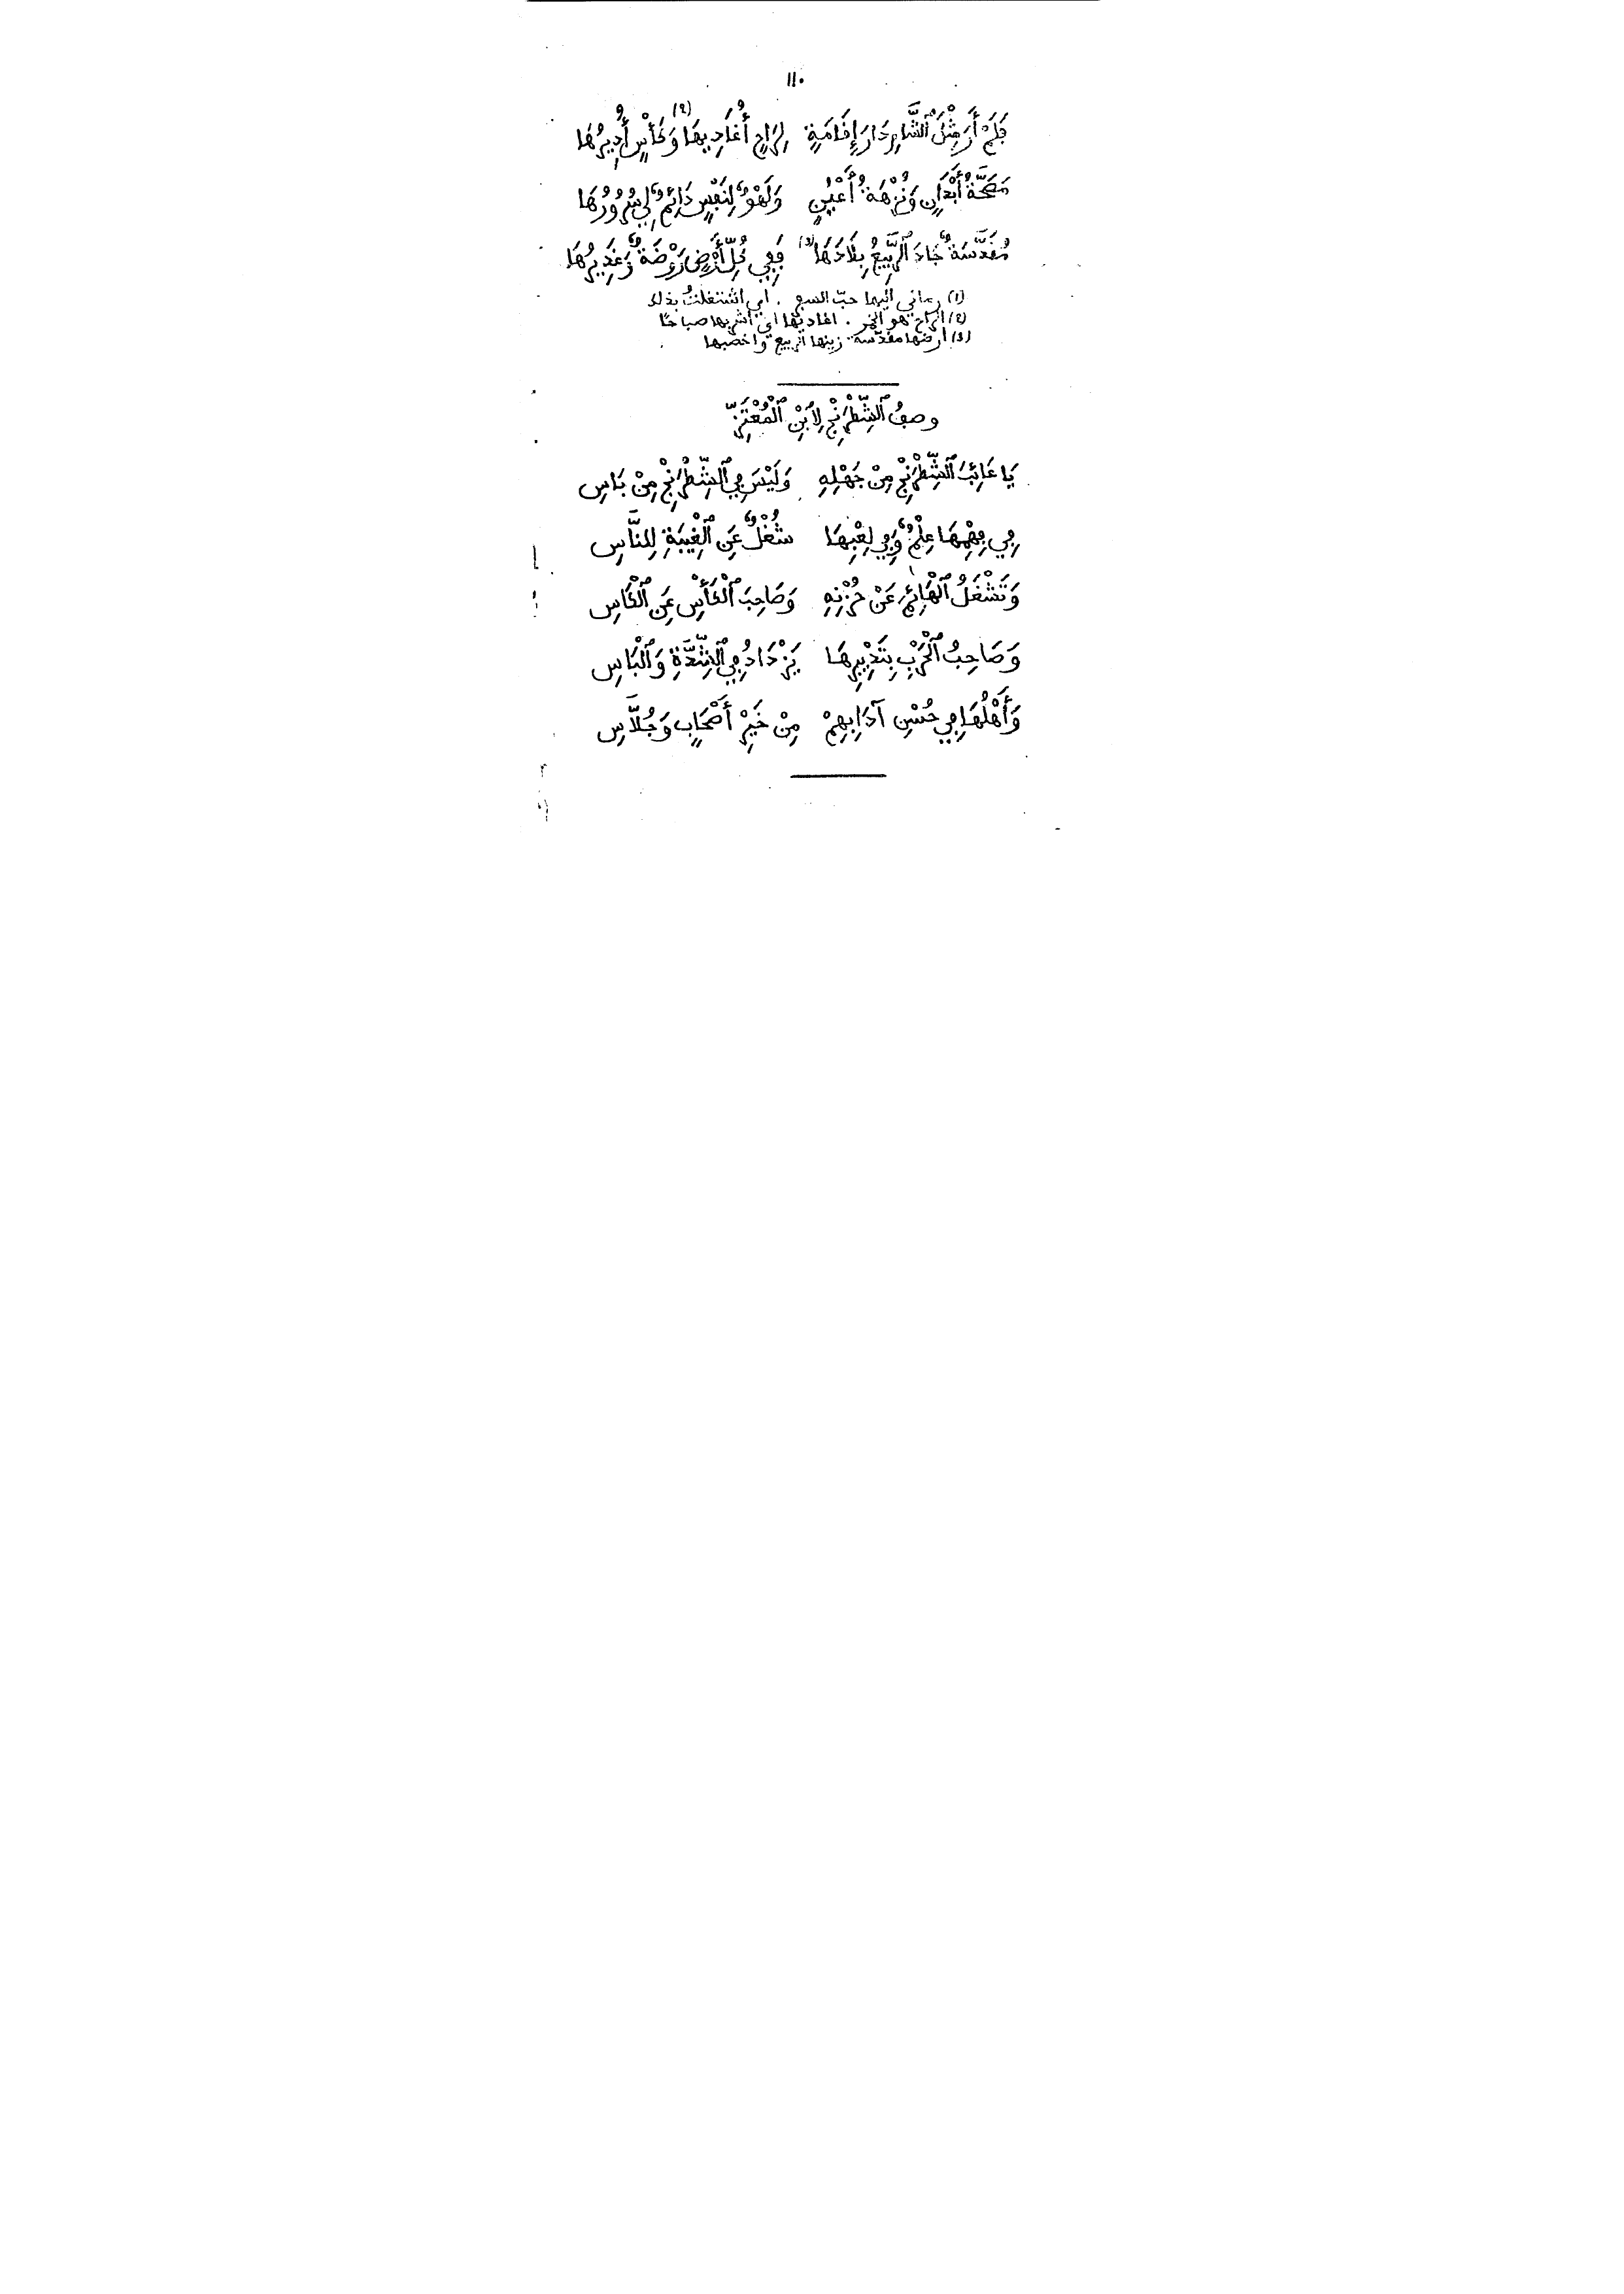 ١١٠
فَلَمْ أَرَ مِثْلَ ٱلشَّامِ دَارَ إِقَامَةٍ لِرَاحٍ أُغَادِيهَا (٢) وَكَأْسٍ أُدِيرُهَا
مَصَحَّةُ أَبْدَانٍ وَنُزْهَةُ أَعْيُنٍ وَلَهْوٌ لِنَفْسٍ دَائِمٌ لِي سُرُورُهَا
مُقَدَّسَةٌ جَادَ ٱلرَّبِيعُ بِلَادَهَا (٣) فَفِي كُلِّ أَرْضٍ رَوْضَةٌ وَغَدِيرُهَا
(١) رماني اليها حبّ السبع . اي اشتغلتُ بذلك
(٢) الراح هو الخمر . اغاديها اي اشربها صباحًا
(٣) ارضها مقدّسة زينها الربيع واخصبها
وصفُ ٱلشِّطْرَنْجِ لِٱبْنِ ٱلْمُعْتَزِّ
يَا عَائِبَ ٱلشِّطْرَنْجِ مِنْ جَهْلِهِ وَلَيْسَ فِي ٱلشِّطْرَنْجِ مِنْ بَاسِ
فِي فِهْمِهَا عِلْمٌ وَفِي لِعْبِهَا شُغْلٌ عَنِ ٱلْغِيبَةِ لِلنَّاسِ
وَتَشْغَلُ ٱلْهَائِمَ عَنْ حُزْنِهِ وَصَاحِبَ ٱلْكَأْسِ عَنِ ٱلْكَاسِ
وَصَاحِبُ ٱلْحَرْبِ بِتَدْبِيرِهَا يَزْدَادُ فِي ٱلشِّدَّةِ وَٱلْبَاسِ
وَأَهْلُهَا فِي حُسْنِ آدَابِهِمْ مِنْ خَيْرِ أَصْحَابٍ وَجُلَّاسِ